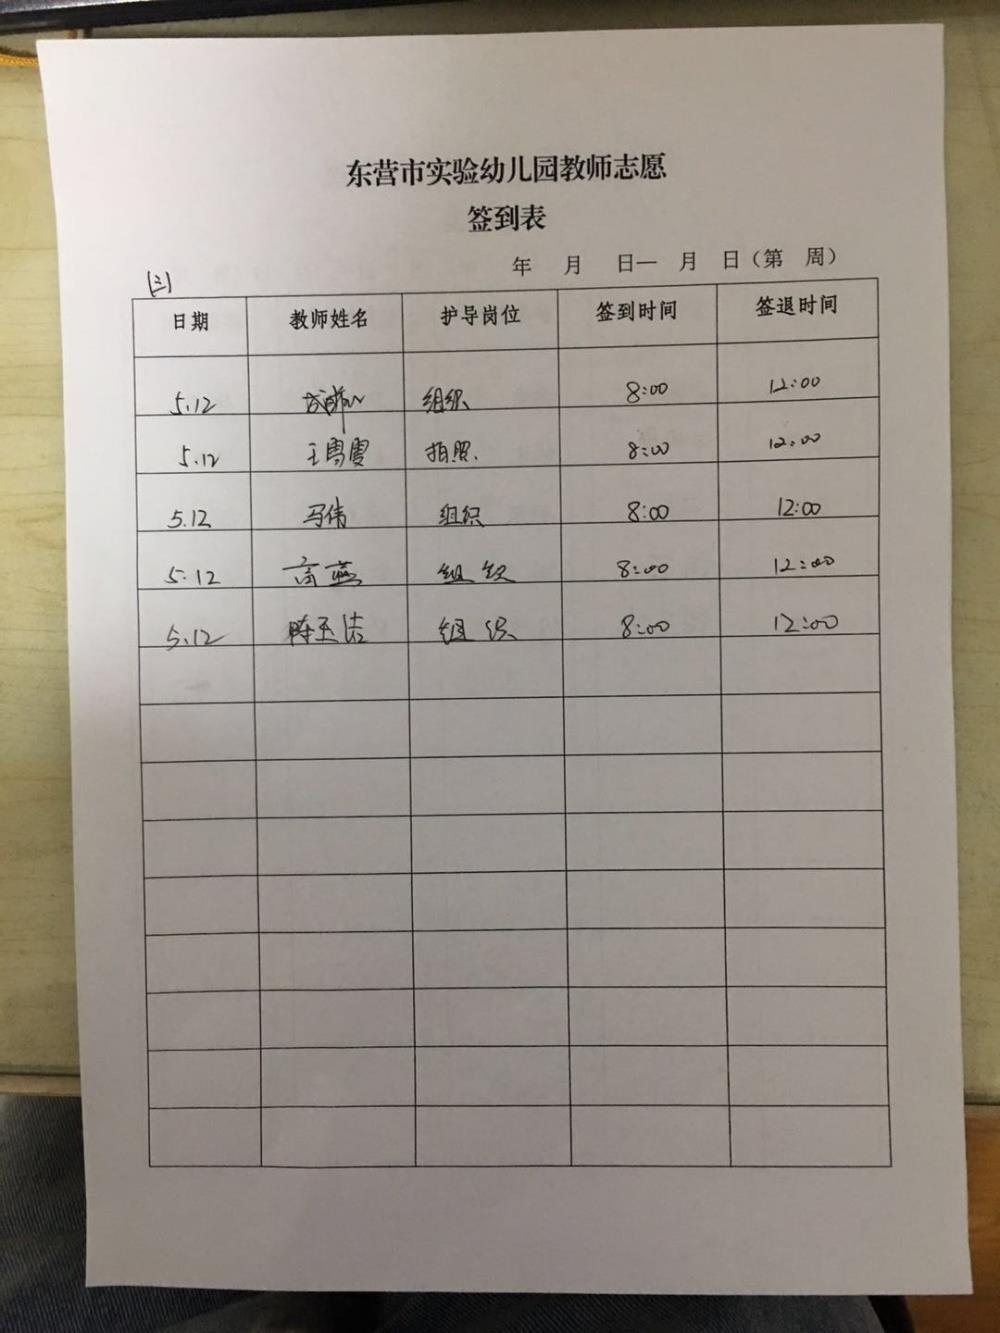 东营市实验幼儿园教师志愿
签到表
年 月 日— 月 日（第 周）
(三)
日期 教师姓名 护导岗位 签到时间 签退时间
5.12 组织 8:00 12:00
5.12 王雪雯 拍照. 8:00 12:00
5.12 马伟 组织 8:00 12:00
5.12 高燕 组织 8:00 12:00
5.12 陈玉洁 组织 8:00 12:00